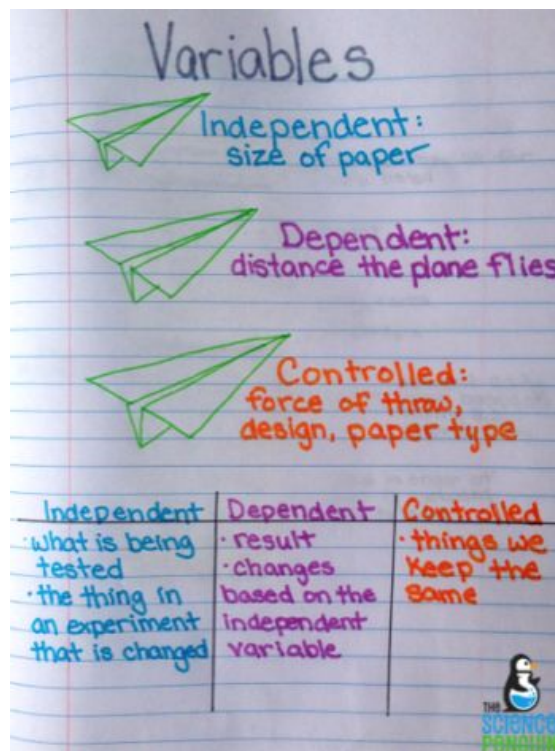 Variables
Independent:
size of paper
Dependent:
distance the plane flies
Controlled:
force of throw,
design, paper type
Independent
Dependent
Controlled
· what is being
tested
· the thing in
an experiment
that is changed
· result
· changes
based on the
independent
variable
· things we
keep the
same
THE
SCIENCE
PENGUIN